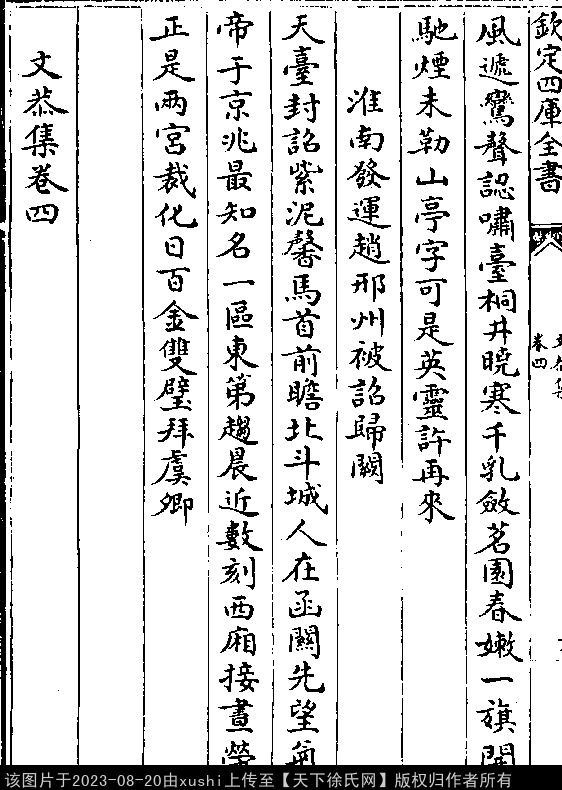 欽定四庫全書
文恭集
卷四
風遞鸞聲認嘯臺桐井曉寒千乳斂茗園春嫩一旗開
馳煙未勒山亭字可是英靈許再來
淮南發運趙邢州被詔歸闕
天臺封詔紫泥馨馬首前瞻北斗城人在函關先望氣
帝子京兆最知名一區東第趨晨近數刻西廂接晝螢
正是兩宮裁化日百金雙璧拜虞卿
文恭集卷四
该图片于2023-08-20由xushi上传至【天下徐氏网】版权归作者所有